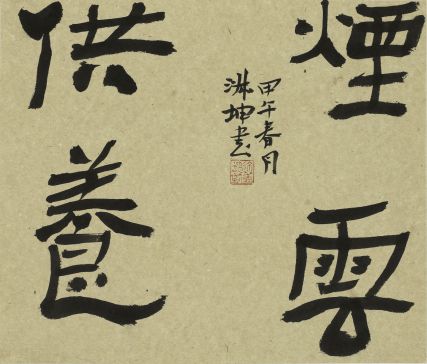 煙雲
甲午春月
坤書
供養